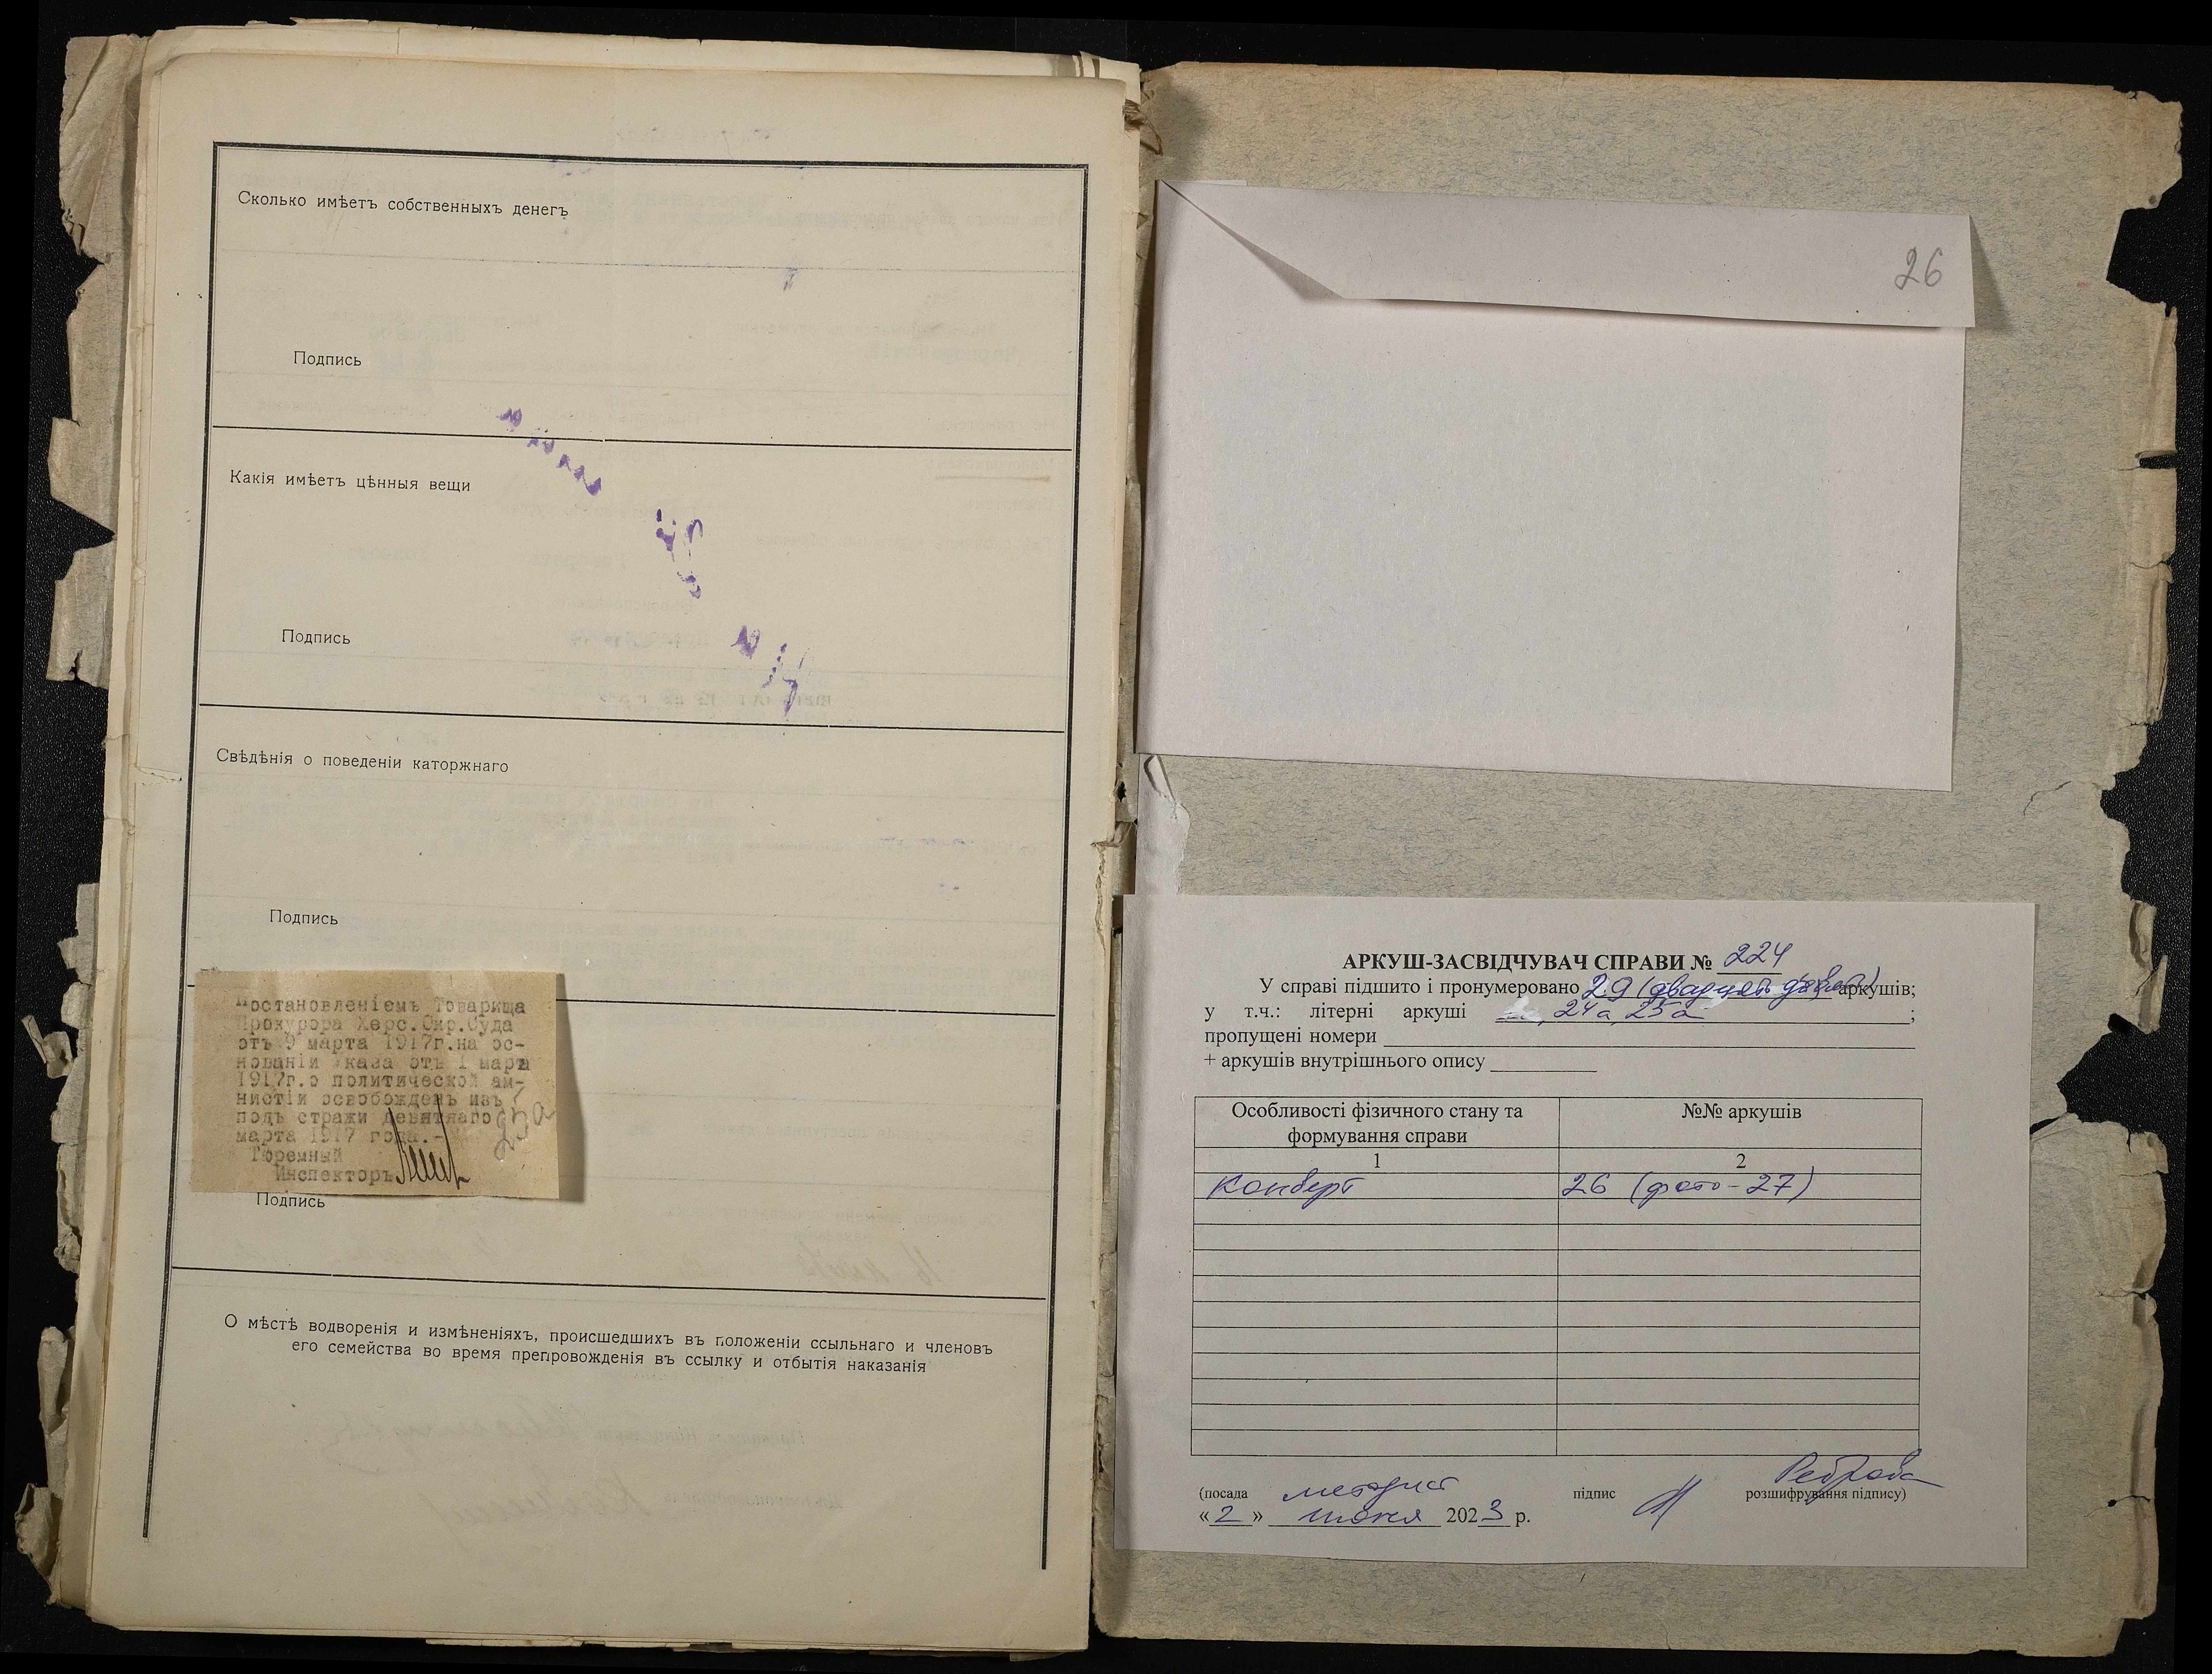 Сколько имѣетъ собственныхъ денегъ
Подпись
Какія имѣетъ цѣнныя вещи
Подпись
Свѣдѣнія о поведеніи каторжнаго
Подпись
Постановленіемъ Товарища
Прокурора Херс.Окр.Суда
отъ 9 марта 1917г.на ос-
нованіи указа отъ 1 марта
1917г.о политической ам-
нистіи освобожденъ изъ
подъ стражи девятаго
марта 1917 года.-
Тюремный
Инспекторъ
25а
Подпись
О мѣстѣ водворенія и измѣненіяхъ, происшедшихъ въ положеніи ссыльнаго и членовъ
его семейства во время препровожденія въ ссылку и отбытія наказанія
26
АРКУШ-ЗАСВІДЧУВАЧ СПРАВИ № 224
У справі підшито і пронумеровано 29 (двадцять дев'ять) аркушів;
у т.ч.: літерні аркуші 24а, 25а ;
пропущені номери
+ аркушів внутрішнього опису
Особливості фізичного стану та формування справи
№№ аркушів
1 2
Конверт 26 (фото - 27)
(посада методист підпис Реброва розшифрування підпису)
« 2 » июня 2023 р.